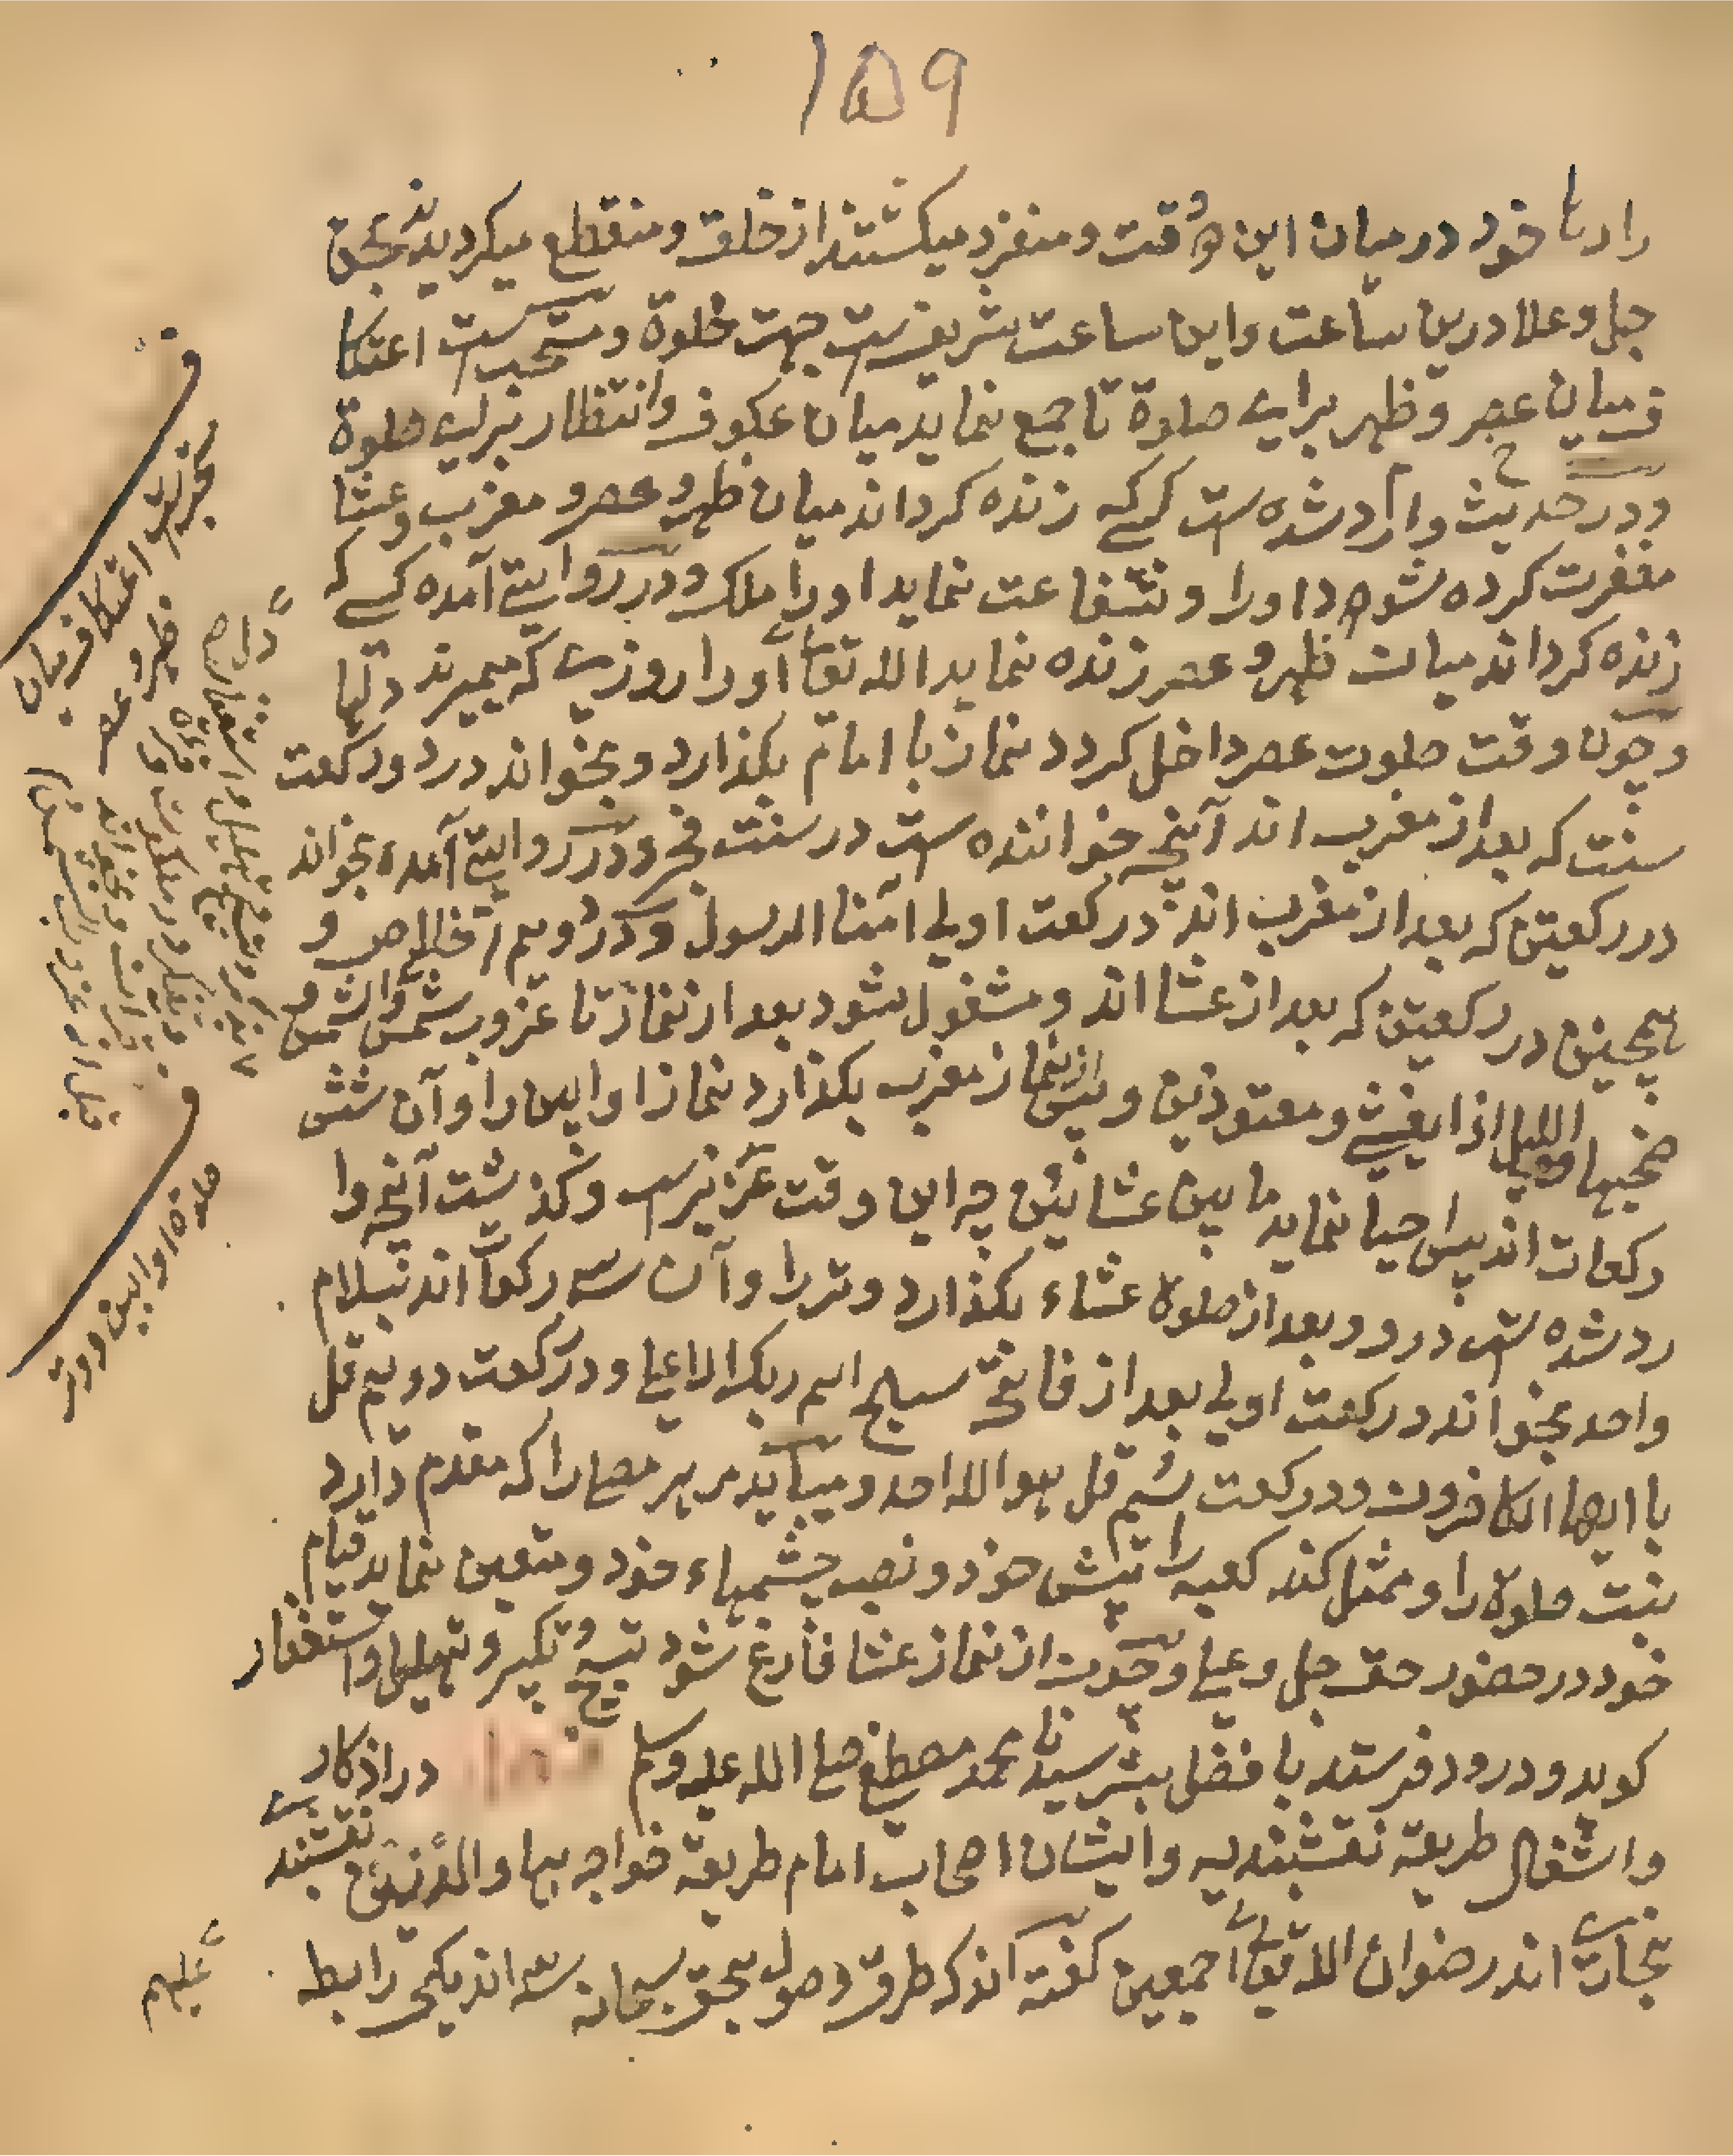 ۱۵۹
را در میان خود در میان این دو وقت و منفرد میکشتند از خلق و منقطع میکردیدند بحق
جل و علا درین ساعت واین ساعت شریفست جهت خلوة و مستحب است اعتکا
ف میان عصر و ظهر برای صلوة تا جمع نماید میان عکوف و انتظار برای صلوة
ودر حدیث وارد شده ست کسے که زنده کرداند میان ظهر و عصر و مغرب و عشا
مغفرت کرده شود اورا و شفاعت نماید اورا ملک ودر روایتے آمده کسے که
زنده کرداند میان ظهر و عصر زنده نماید الله تعا اورا روزے که میمیرند دلها
وچون وقت صلوت عصر داخل کردد نماز با امام بکذارد و بخواند در دو رکعت
سنت که بعد از مغرب اند آنچه خوانده ست در سنت فجر ودر روایتے آمده بخواند
در رکعتین که بعد از مغرب اند در رکعت اولی آمنا الرسول ودر دویم اخلاص و
همچنین در رکعتین که بعد از عشا اند و مشغول شود بعد از نماز تا غروب شمس والشمس و
ضحیها واللیل اذا یغشے و معوذتین و پس از نماز مغرب بکذارد نماز اوابین را وآن شش
رکعات اند پس احیا نماید ما بین عشائین چه این وقت عزیزست و کذشت آنچه وا
رد شده ست درو و بعد از صلوة عشاء بکذارد وتر را وآن سه رکعات اند بسلام
واحد بخواند در رکعت اولی بعد از فاتحة سبح اسم ربک الاعلی ودر رکعت دویم قل
یا ایها الکافرون ودر رکعت سیم قل هو الله احد و میباید مر هر مصلے را که مقدم دارد
نیت صلوة را و ممثل کند کعبه را پیش خود و نصب چشمهاء خود و متعین نماید قیام
خود در حضور حق جل و علی وچون از نماز عشا فارغ شود تسبیح و تکبیر و تهلیل و استغفار
کوید ودرود فرستد با فضل بشر سیدنا محمد مصطفے صلے الله علیه وسلم در اذکار
واشغال طریقه نقشبندیه وایشان اصحاب امام طریقه خواجه بهاو الدین نقشبند
بخارے اند رضوان الله تعالے اجمعین کفته اند که طرق وصول بحق سبحانه سه اند یکی رابطه
علیهم
ف
اعتکاف میان
ظهر و عصر
ف
صلوة اوابین و وتر